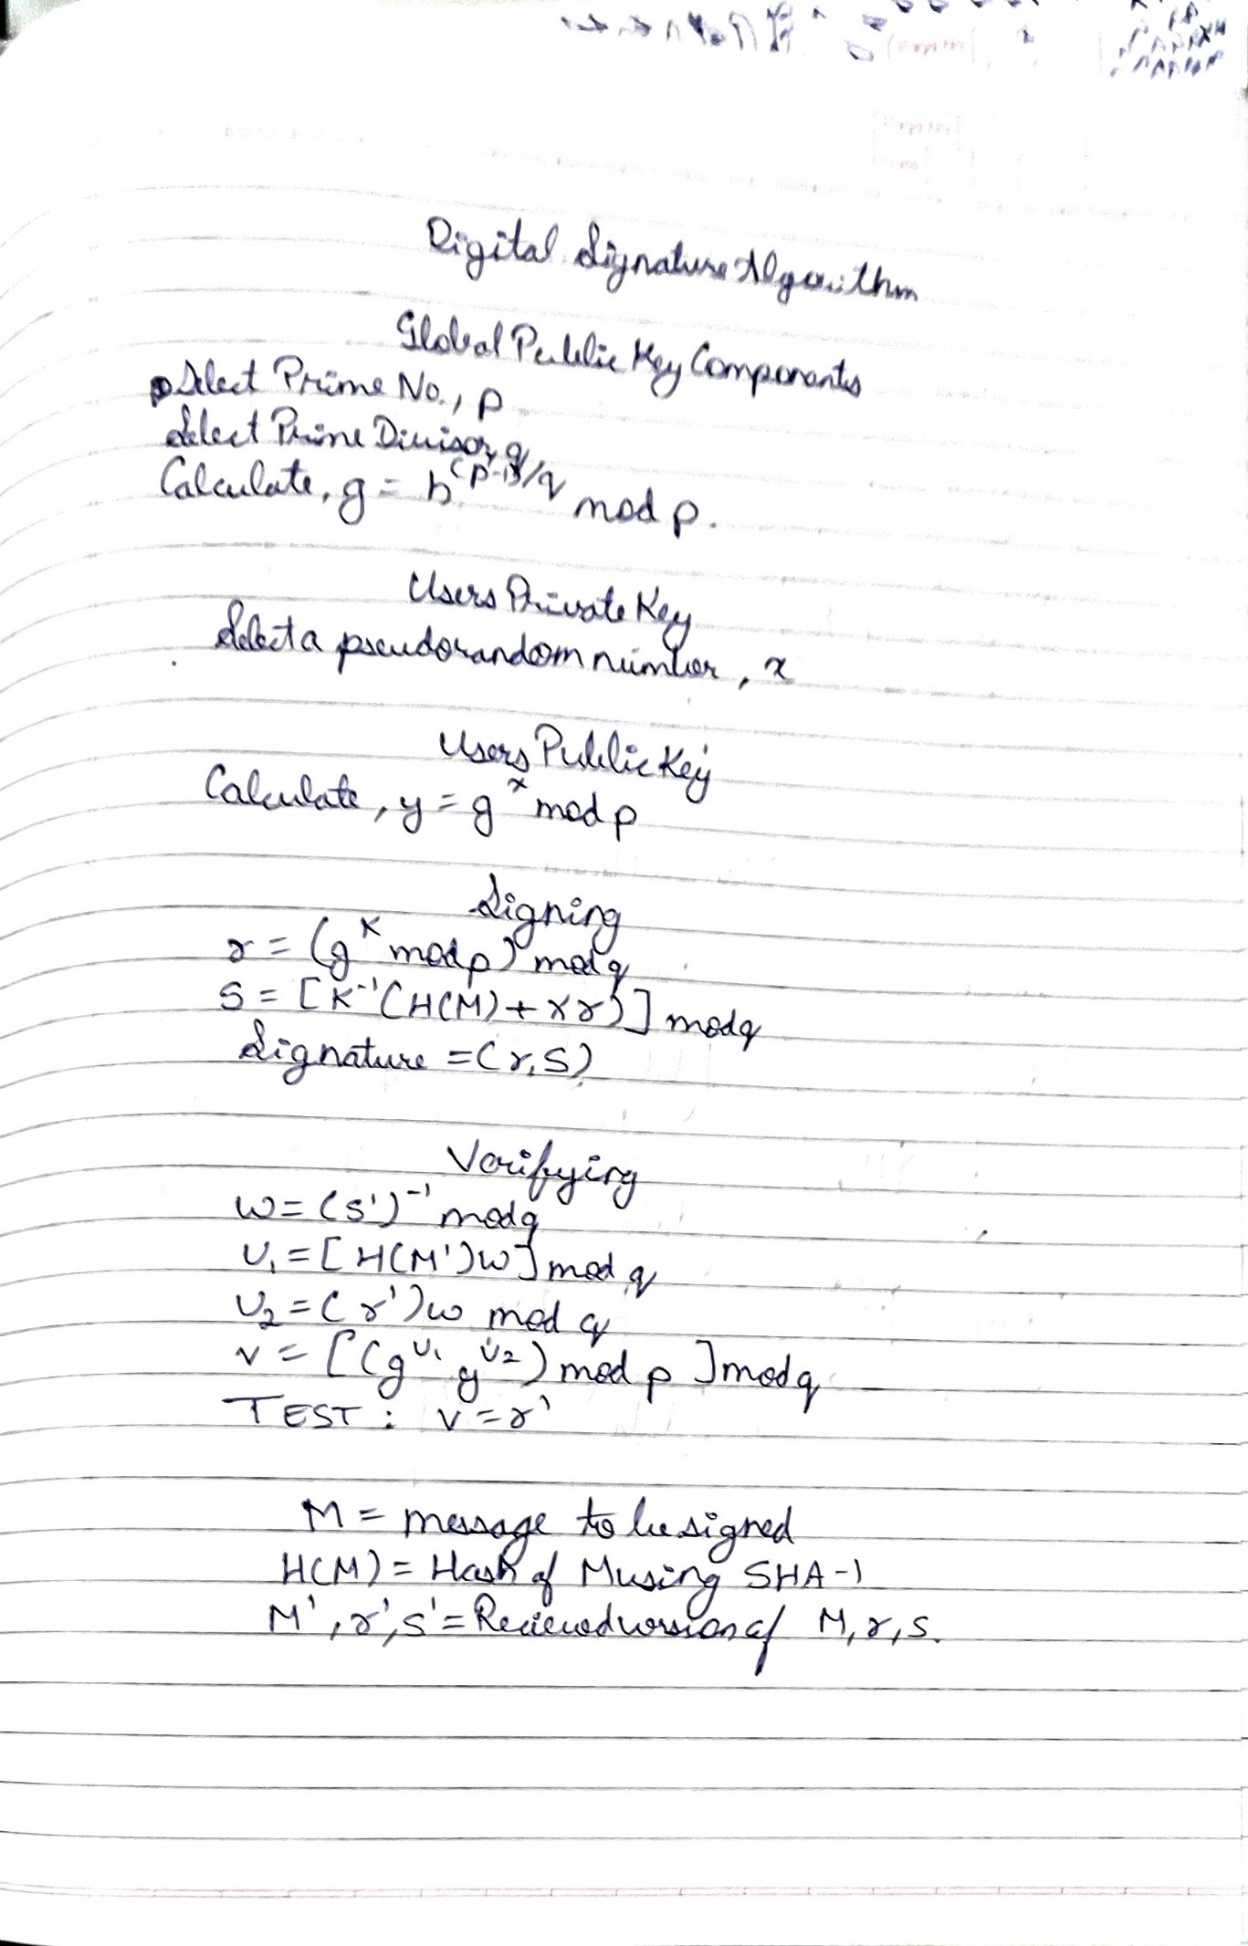 Digital Signature Algorithm
Global Public Key Components
Select Prime No., p
Select Prime Divisor, q
Calculate, g = h^(p-1)/q mod p.
Users Private Key
Select a pseudorandom number, x
Users Public Key
Calculate, y = g^x mod p
Signing
r = (g^K mod p) mod q
S = [K⁻¹(H(M) + xr)] mod q
Signature = (r, S)
Verifying
w = (s')⁻¹ mod q
U₁ = [H(M')w] mod q
U₂ = (r')w mod q
v = [(g^U₁ y^U₂) mod p] mod q
TEST: v = r'
M = message to be signed
H(M) = Hash of M using SHA-1
M', r', s' = Recieved version of M, r, s.